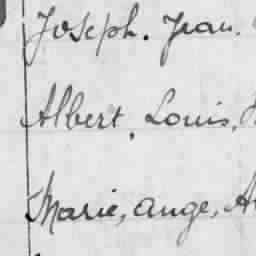 Joseph. Jean.
Albert, Louis,
Marie, Ange, A